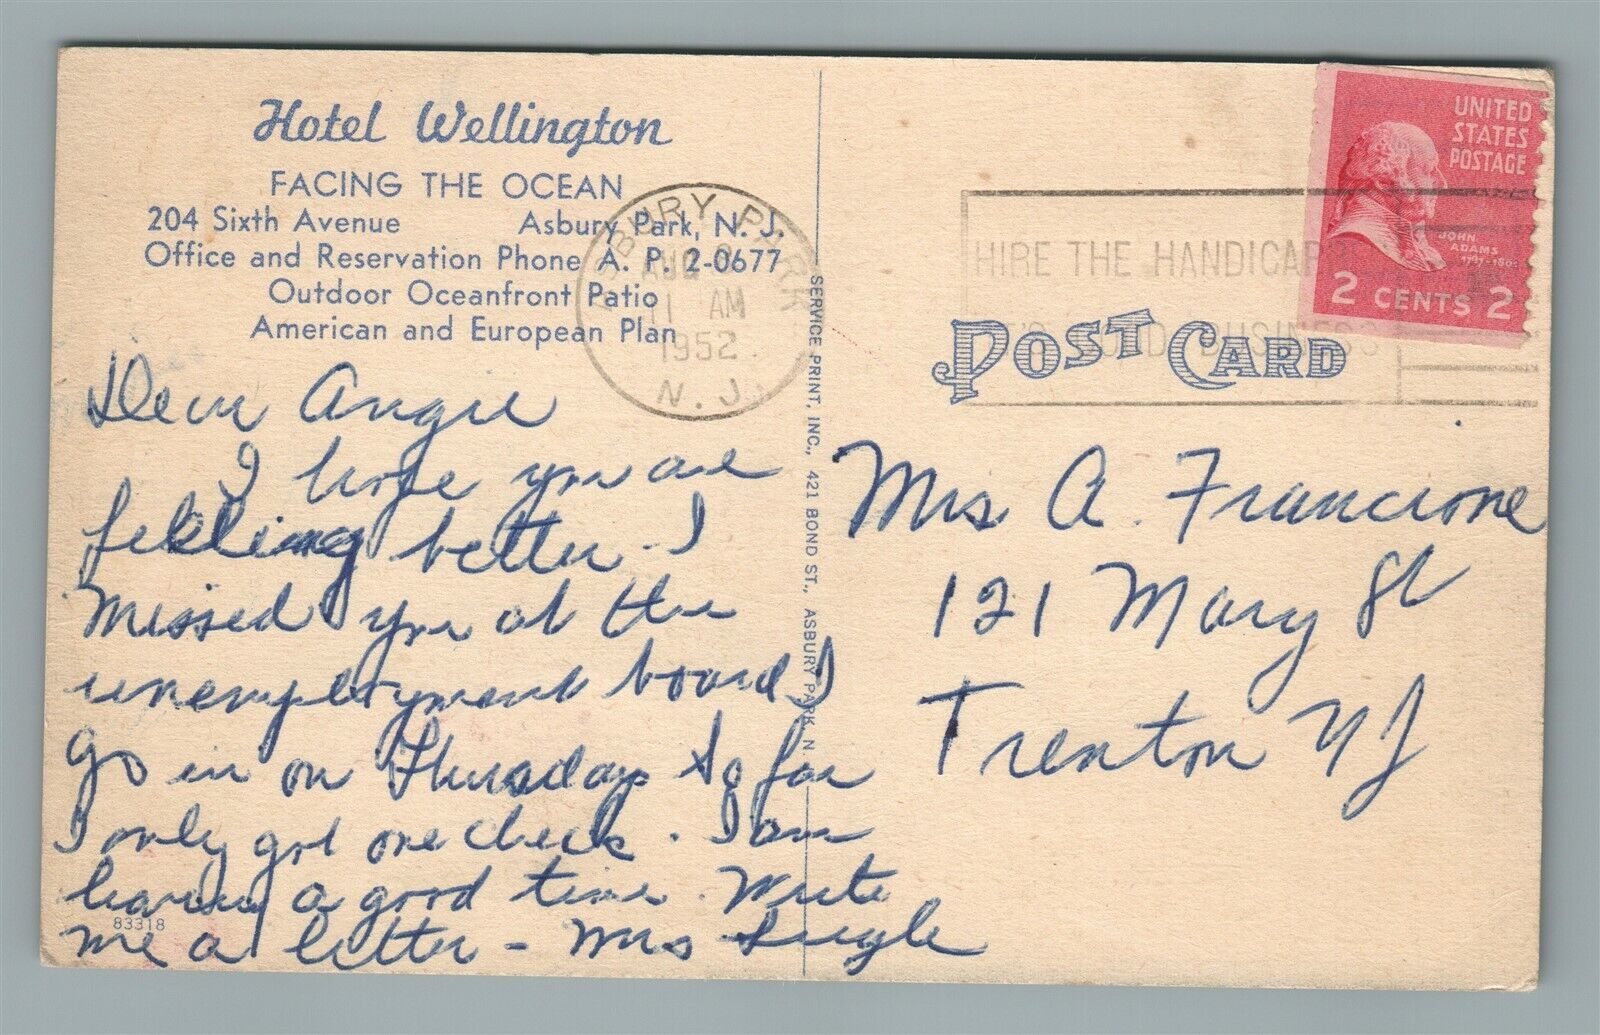 Hotel Wellington
FACING THE OCEAN
204 Sixth Avenue Asbury Park, N. J.
Office and Reservation Phone A. P. 2-0677
Outdoor Oceanfront Patio
American and European Plan
ASBURY PARK
AUG
11 AM
1952
N. J.
Dear Angie
I hope you are
feeling better. I
missed you at the
unemployment board I
go in on Thursday So far
I only got one check. I am
having a good time. Write
me a letter - Mrs
83318
SERVICE PRINT, INC., 421 BOND ST., ASBURY PARK, N
UNITED
STATES
POSTAGE
JOHN
ADAMS
2 CENTS 2
HIRE THE HANDICAPPED
IT'S GOOD BUSINESS
POST CARD
Mrs A. Francione
121 Mary St
Trenton NJ